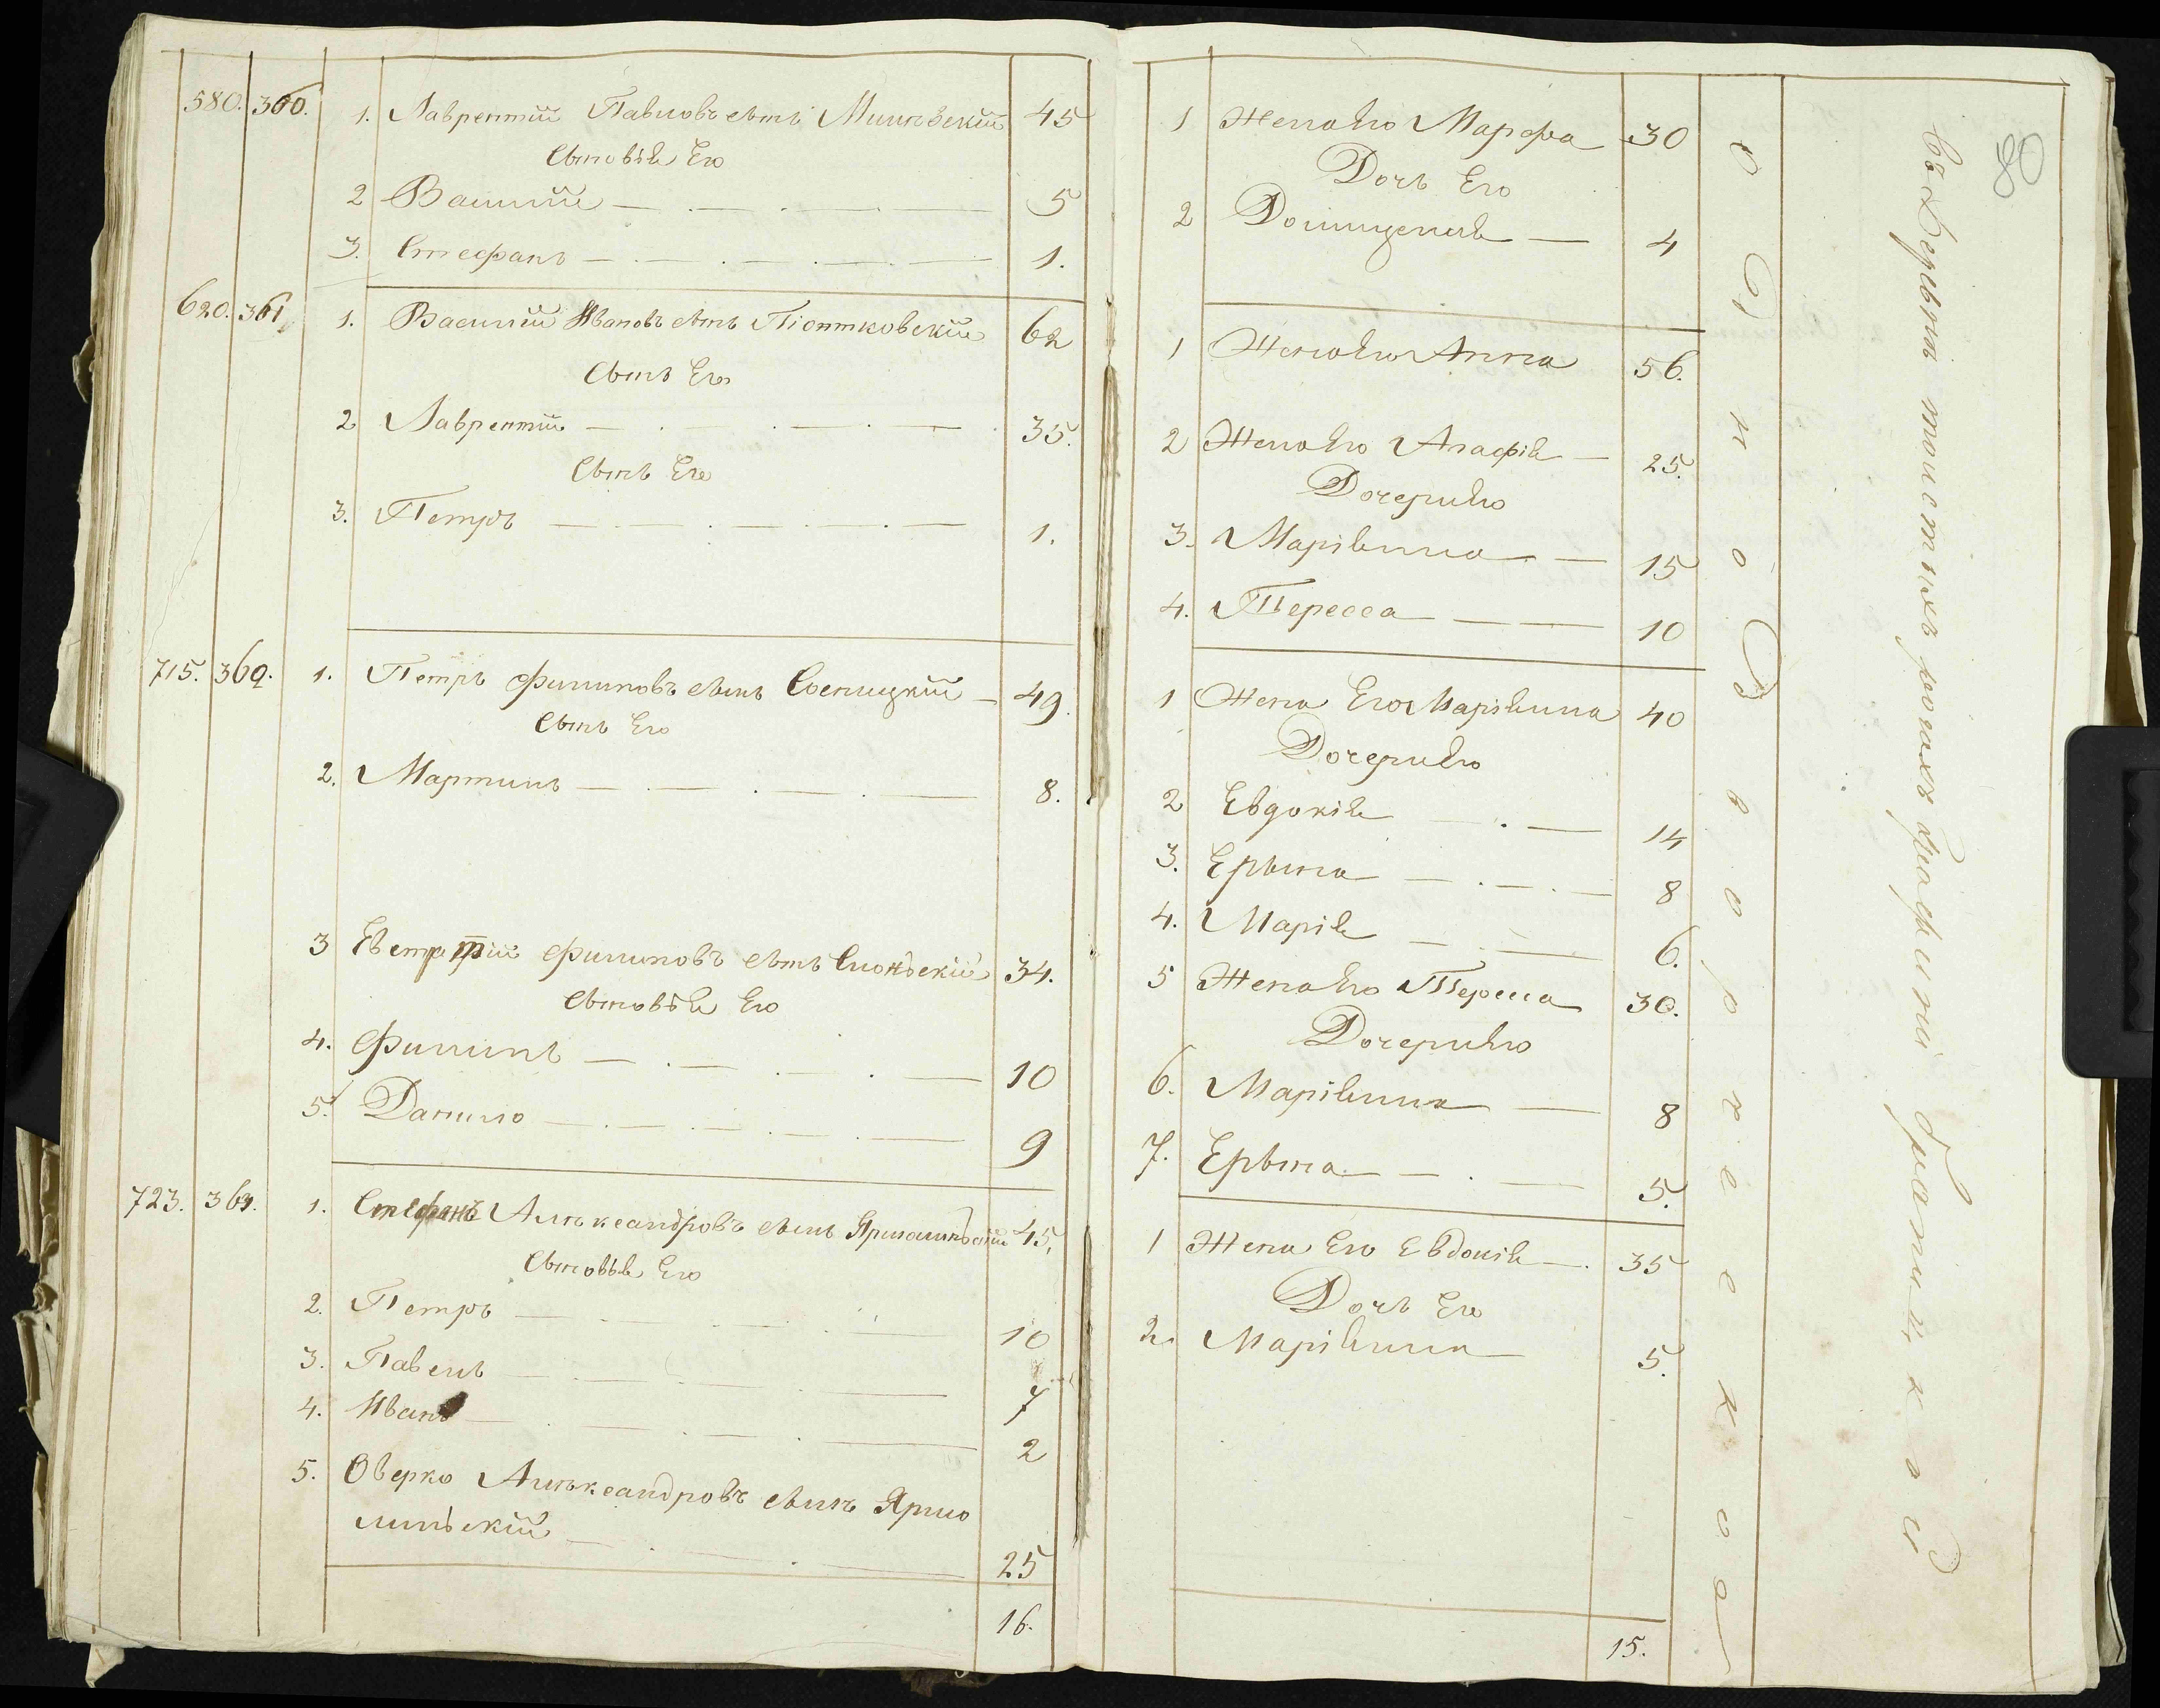 580. 360. 1. Лаврентій Павловъ сынъ 45
Сыновья Его
2 Василій 5
3. Стефанъ 1.
620. 361 1. Василій Ивановъ сынъ Піонтковскій 62
Сынъ Его
2 Лаврентій 35.
Сынъ Его
3. Петръ 1.
715. 362. 1. Петръ Филиповъ сынъ 49.
Сынъ Его
2. Мартинъ 8.
3 Евстратій Филиповъ сынъ 34.
Сыновья Его
4. Филипъ 10
5. Данило 9
723. 363. 1. Стефанъ Александровъ сынъ 45.
Сыновья Его
2. Петръ 10
3. Павелъ 7
4. Иванъ 2
5. Оверко Александровъ сынъ Ярмо
линскій
25
16.
80
1 Жена Его Марфа 30
Дочь Его
2 4
1 Жена Его Анна 56.
2 Жена Его Агафія 25.
Дочери Его
3. Маріянна 15
4. Тересса 10
1 Жена Его Маріянна 40
Дочери Его
2 Евдокія 14
3. Ерына 8
4. Марія 6.
5 Жена Его Тересса 30.
Дочери Его
6. Маріянна 8
7. Ерына 5.
1 Жена Его Евдокія 35
Дочь Его
2. Маріянна 5.
15.
Однодворческоа
въ Деревни